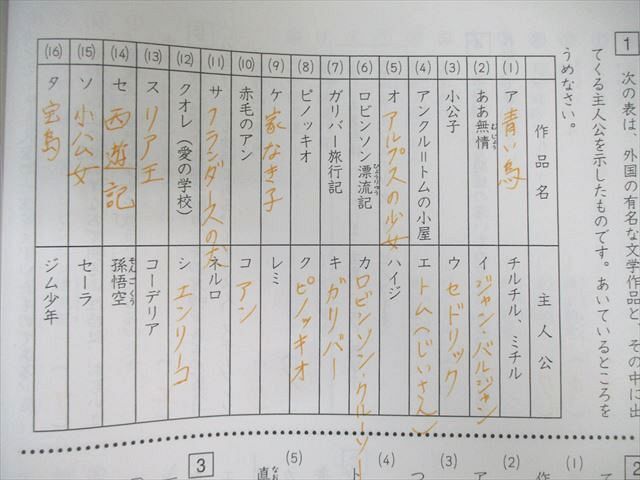 1
次の表は、外国の有名な文学作品と、その中に出
てくる主人公を示したものです。あいているところを
うめなさい。
作品名 主人公
(1) ア 青い鳥 チルチル、ミチル
(2) ああ無情 イ ジャン・バルジャン
むじょう
(3) 小公子 ウ セドリック
(4) アンクル=トムの小屋 エ トム(じいさん)
(5) オ アルプスの少女 ハイジ
(6) ロビンソン漂流記 カ ロビンソン・クルーソー
ひょうりゅう
(7) ガリバー旅行記 キ ガリバー
(8) ピノッキオ ク ピノッキオ
(9) ケ 家なき子 レミ
(10) 赤毛のアン コ アン
(11) サ フランダースの犬 ネルロ
(12) クオレ(愛の学校) シ エンリーコ
(13) ス リア王 コーデリア
(14) セ 西遊記 孫悟空
そんごくう
(15) ソ 小公女 セーラ
(16) タ 宝島 ジム少年
2
(1) て
作
(2) ア
(3) つ
(4) ト
(5)
直
なお
3